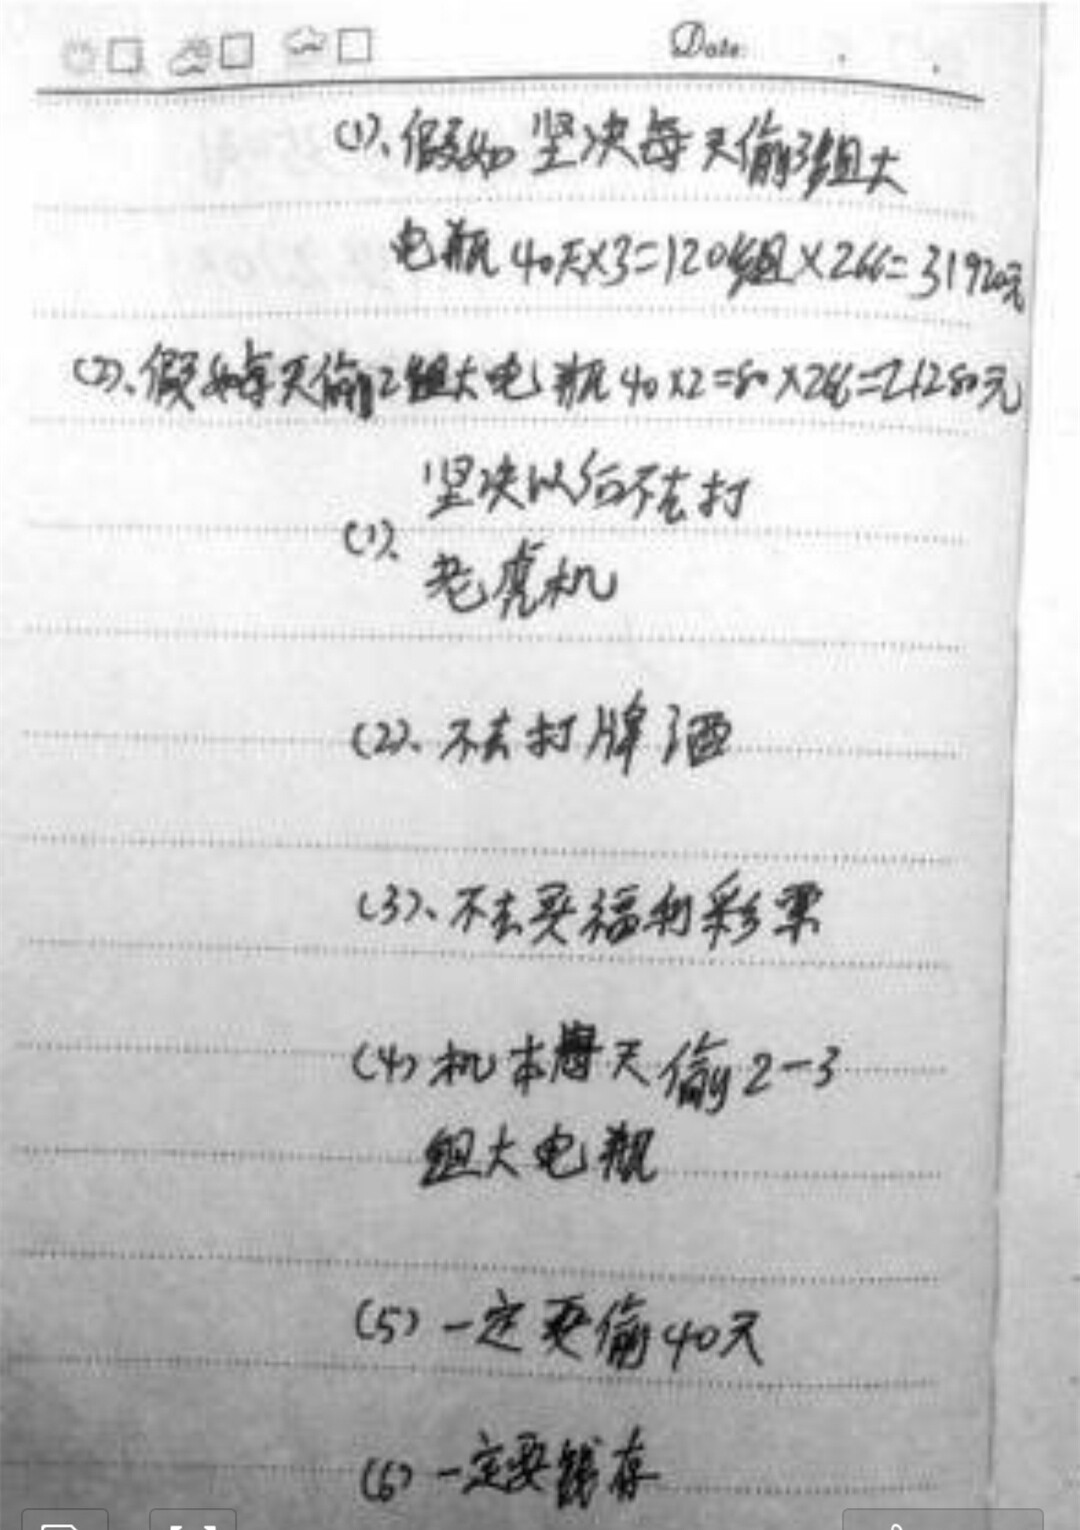 Date:
(1)、假如坚决每天偷3组大
电瓶40天×3=120组×266=31920元
(2)、假如每天偷2组大电瓶40×2=80×266=21280元
坚决以后不去打
(1)、
老虎机
(2)、不去打牌洒
(3)、不去买福利彩票
(4)机本每天偷2-3
组大电瓶
(5)一定要偷40天
(6)一定要钱存